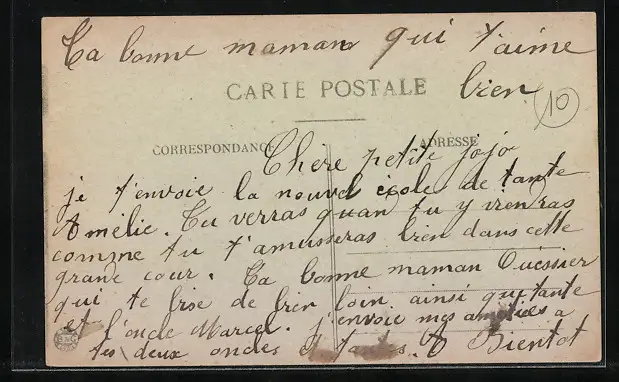 Ta bonne maman qui t'aime
bien
10
CARTE POSTALE
CORRESPONDANCE
ADRESSE
Chere petite jojo
je t'envoie la nouvel école de tante
Amélie. Tu verras quan tu y viendras
comme tu t'amuseras bien dans cette
grande cour. Ta bonne maman Ouessier
qui te bise de bien loin ainsi que tante
et l'oncle Marcel. j'envoie mes amitiés a
tes deux oncles et tantes. A Bientot